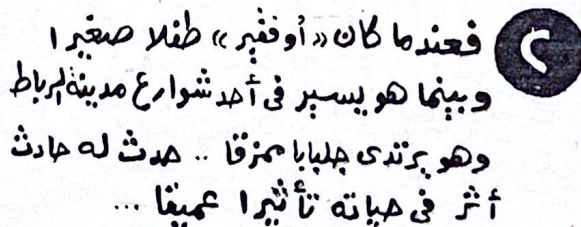 ٢
فعندما كان «أوفقير» طفلا صغيرا
وبينما هو يسير فى أحد شوارع مدينة الرباط
وهو يرتدى جلبابا ممزقا .. حدث له حادث
أثر فى حياته تأثيرا عميقا ...